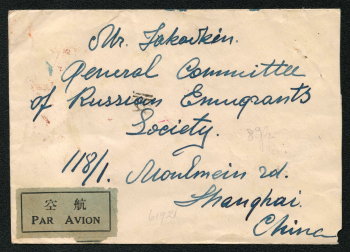 Mr. Jakovkin.
General Committee
of Russian Emigrants
Society.
118/1. Moulmein rd.
Shanghai.
China
空航
PAR AVION